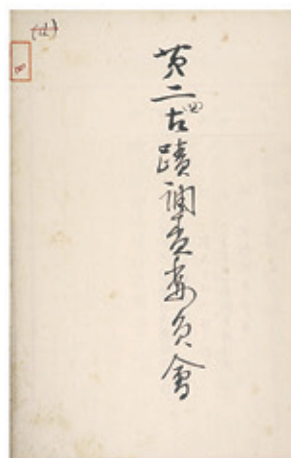 第二(四)古蹟調査委員會